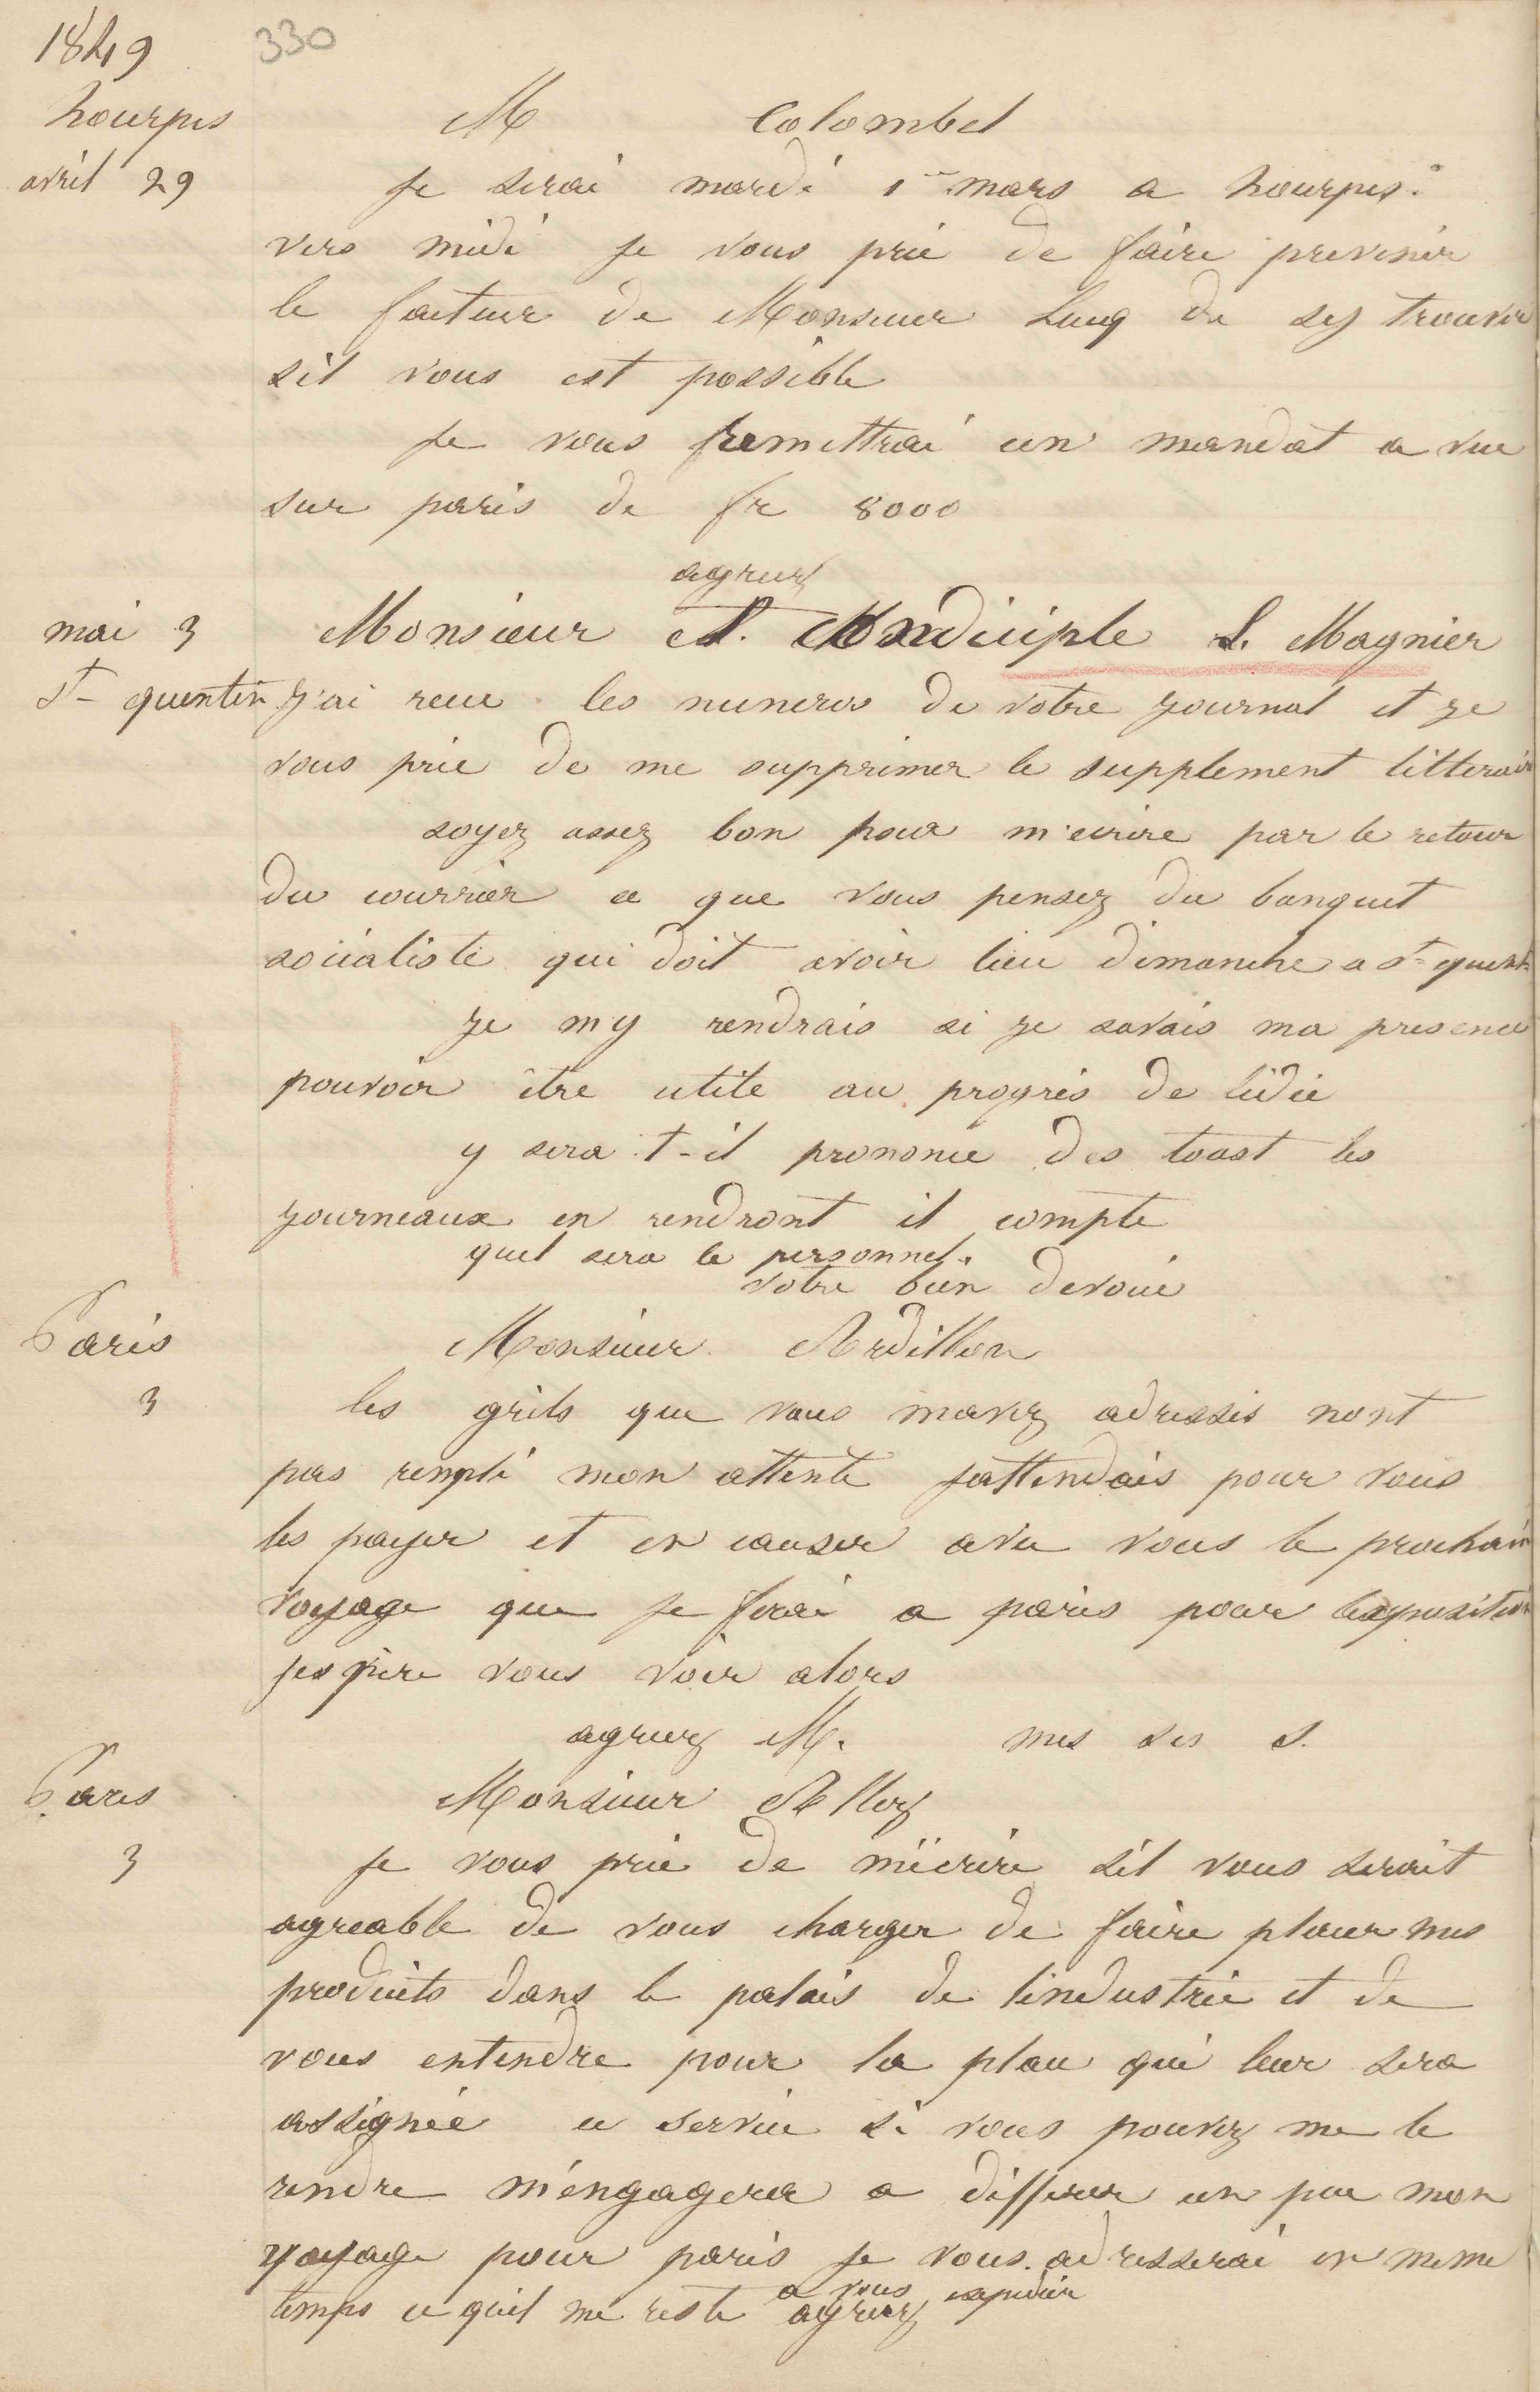 1849
330
hourpes
M Colombel
avril 29
Je serai mardi 1er mars a hourpes
vers midi je vous prie de faire prevenir
le facteur de Monsieur Lucq de sy trouver
sil vous est possible
je vous remettrai un mandat a vue
sur paris de fr 8000
agreez
mai 3
Monsieur L. Magnier
St quentin
J'ai recu les numeros de votre journal et je
vous prie de me supprimer le supplement litterair
soyez assez bon pour m'ecrire par le retour
du courrier ce que vous pensez du banquet
socialiste qui doit avoir lieu dimanche a St quent
je my rendrais si je savais ma presence
pouvoir être utile au progrès de lidée
y sera-t-il prononcé des toast les
journeaux en rendront il compte
quel sera le personnel.
votre bien devoué
Paris
Monsieur Ardillon
3
les grils que vous mavez adressés nont
pas rempli mon attente jattendais pour vous
les payer et en causer avec vous le prochain
voyage que je ferai a paris pour lexposition
jespere vous voir alors
agreez M. mes ses s.
Paris
Monsieur Allez
3
je vous prie de mécrire sil vous serait
agreable de vous charger de faire placer mes
produits dans le palais de lindustrie et de
vous entendre pour la place qui leur sera
assignée ce service si vous pouvez me le
rendre m'engagera a differer un peu mon
voyage pour paris je vous adresserai en meme
temps ce quil me reste a vous expedier
agreez